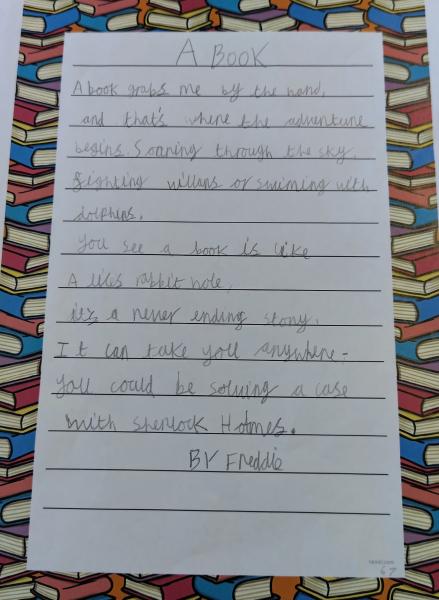 A BOOK
A book grabs me by the hand,
and that's where the adventure
begins. Soaring through the sky,
fighting villans or swiming with
dolphins.
You see a book is like
A lices rabbit hole,
it's a never ending story.
It can take you anywhere-
you could be solving a case
with Sherlock Holmes.
BY Freddie
67